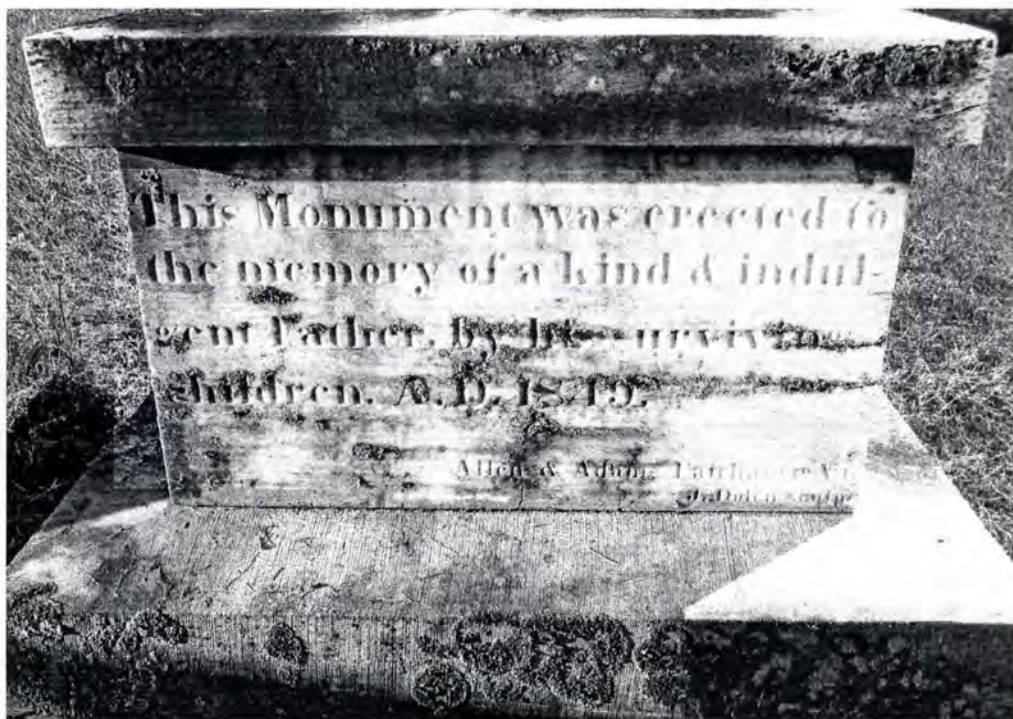 This Monument was erected to
the memory of a kind & indul-
gent Father, by his surviving
children. A.D. 1849.
Allen & Adams Fairhaven Vt.